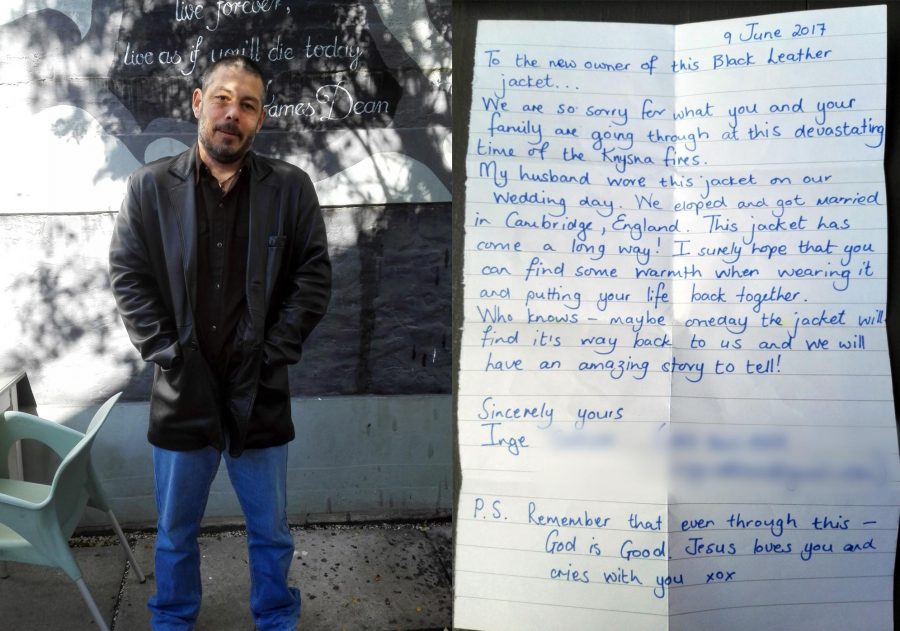 live forever,
live as if you'll die today
James Dean
9 June 2017
To the new owner of this Black Leather
jacket...
We are so sorry for what you and your
family are going through at this devastating
time of the Knysna fires.
My husband wore this jacket on our
Wedding day. We eloped and got married
in Cambridge, England. This jacket has
come a long way! I surely hope that you
can find some warmth when wearing it
and putting your life back together.
Who knows – maybe oneday the jacket will
find it's way back to us and we will
have an amazing story to tell!
Sincerely yours
Inge
P.S. Remember that even through this –
God is Good. Jesus loves you and
cries with you xox